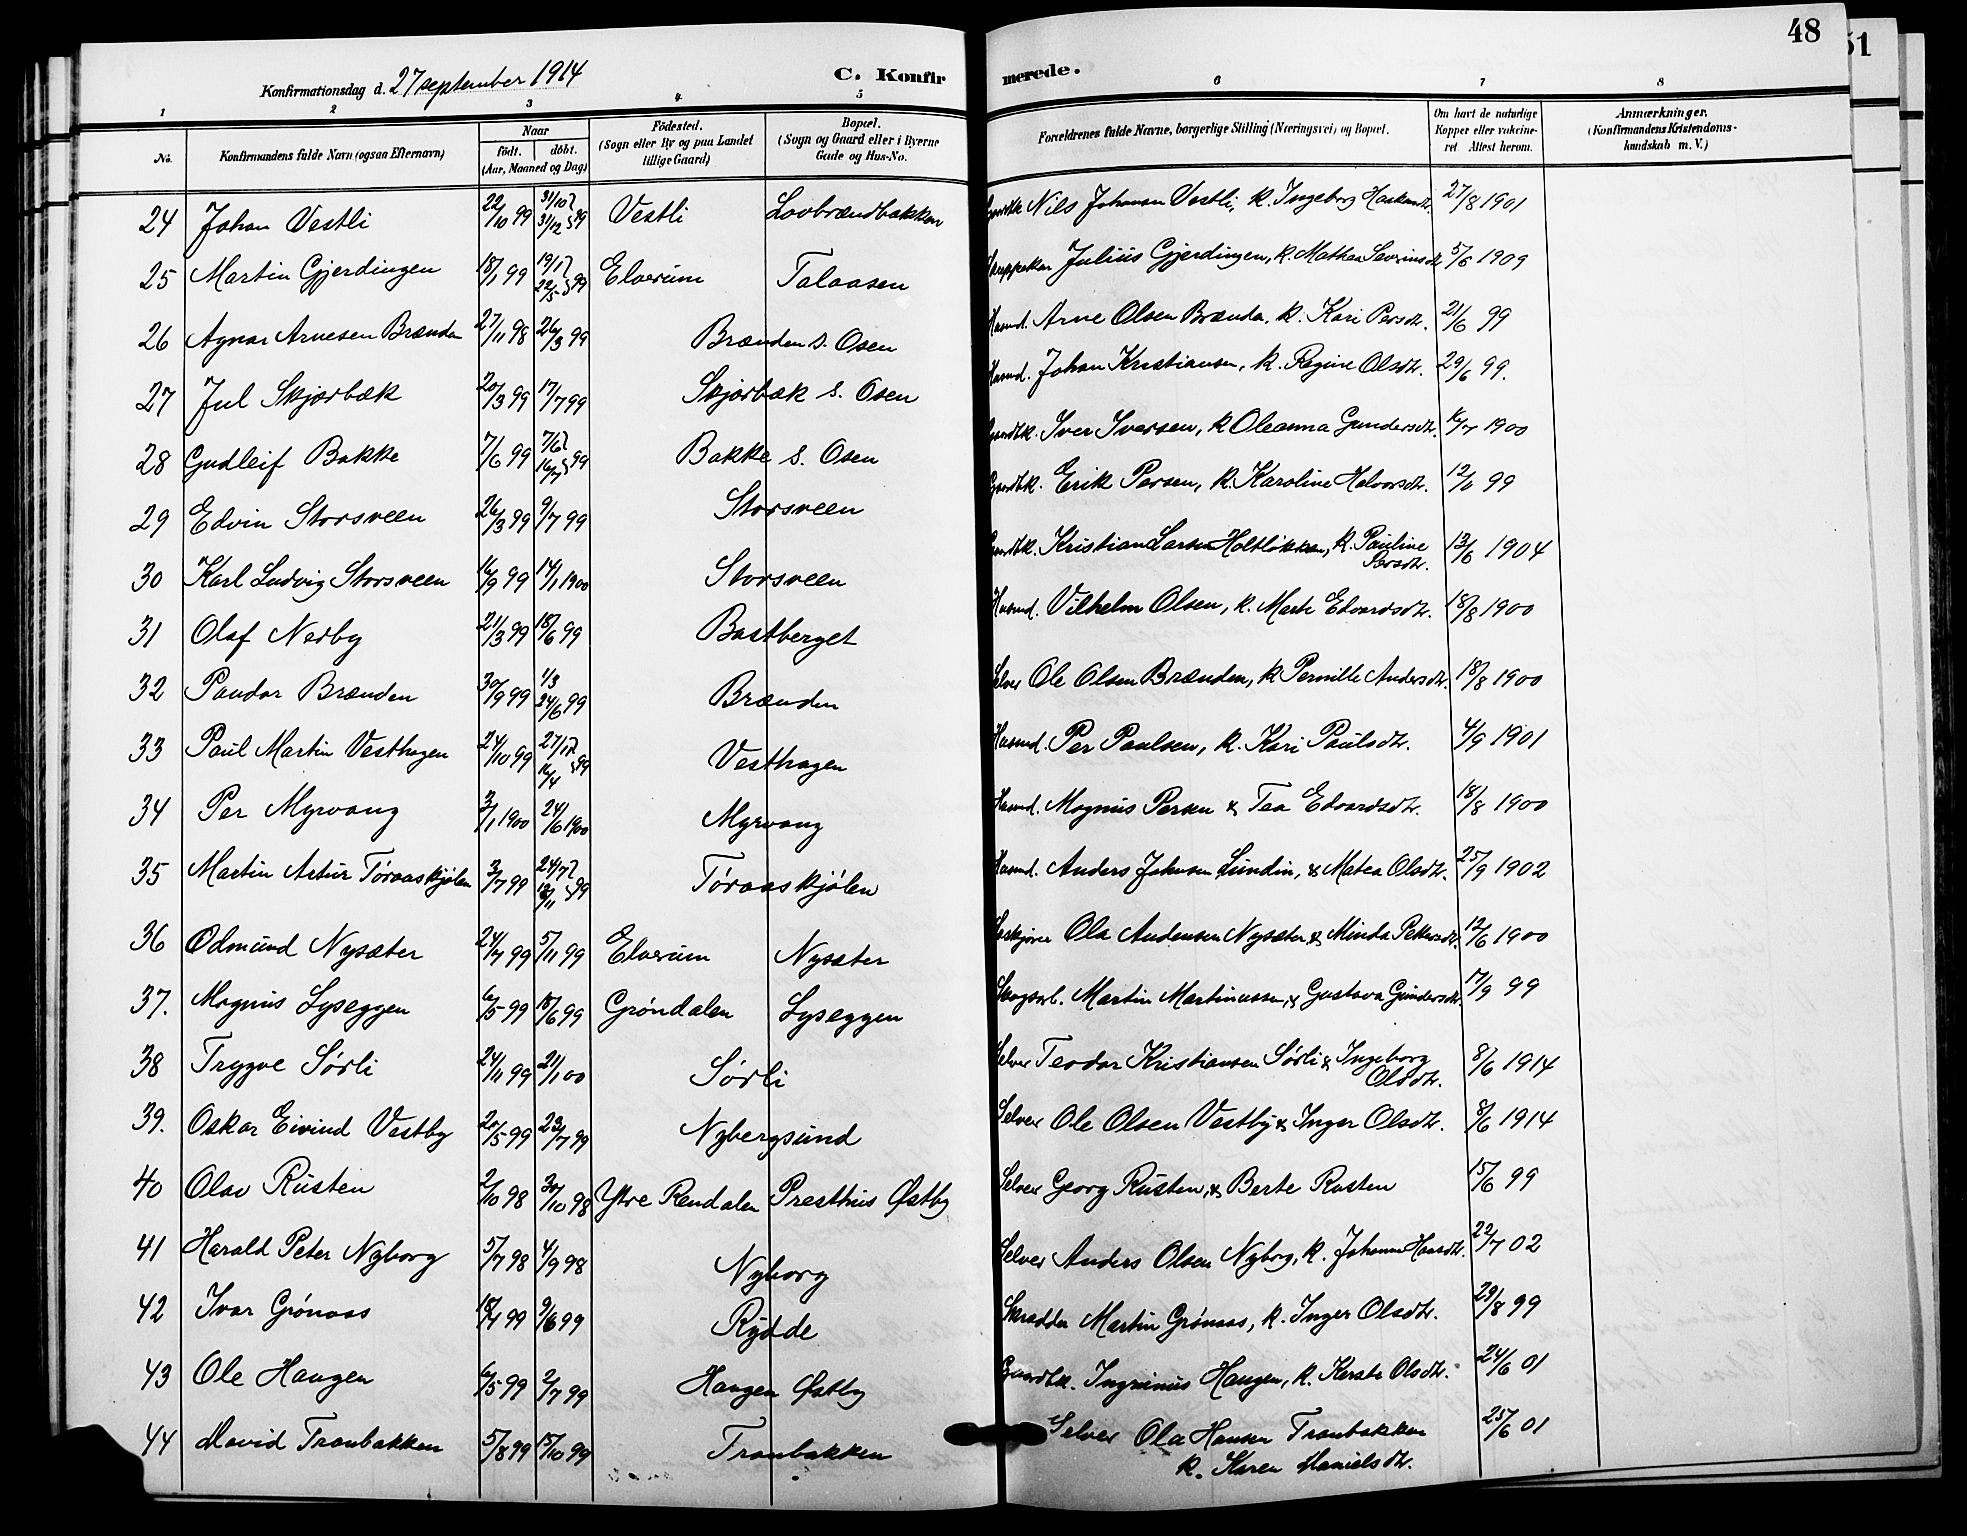 48
51
Konfirmationsdag d. 27 september 1914 C. Konfir merede.
1 2 3 4 5 6 7 8
No. Konfirmandens fulde Navn (ogsaa Efternavn) Naar født. døbt. (Aar, Maaned og Dag) Födested. (Sogn eller By og paa Landet tillige Gaard) Bopæl. (Sogn og Gaard eller i Byerne Gade og Hus-No. Forældrenes fulde Navne, borgerlige Stilling (Næringsvei) og Bopæl. Om havt de naturlige Kopper eller vakcineret Attest herom. Anmærkninger. (Konfirmandens Kristendomskundskab m. V.)
24 Johan Vestli 22/10 99 31/10 31/12 99 Vestli Lovbrændbakken Nils Johansen Vestli, k. Ingeborg 27/8 1901
25 Martin Gjerdingen 18/1 99 19/1 22/5 99 Elverum Talaasen Julius Gjerdingen, k. Mathea Severinsdtr. 5/6 1909
26 Agnar Arnesen Brænden 27/11 98 26/3 99 Brænden s. Osen Husmd. Arne Olsen Brænden, k. Kari Persdtr. 21/6 99
27 Jul Skjærbæk 20/3 99 17/7 99 Skjærbæk s. Osen Husmd. Johan Kristiansen, k. Regine Olsdtr. 29/6 99.
28 Gudleif Bakke 7/6 99 7/6 16/7 99 Bakke s. Osen Gaardbk. Iver Iversen, k Oleanna Gundersdtr. 1900
29 Edvin Storsveen 26/3 99 9/7 99 Storsveen Gaardbk. Erik Persen, k. Karoline Halvorsdtr. 99
30 Karl Ludvig Storsveen 16/9 99 14/1 1900 Storsveen Gaardbk. Kristian Larsen Holtløkken, k. Pauline Persdtr. 13/6 1904
31 Olaf Nerby 21/3 99 18/6 99 Bastberget Husmd. Vilhelm Olsen, k. Marte Edvardsdtr. 18/8 1900
32 Pander Brænden 30/9 99 1/3 24/6 99 Brænden Selver Ole Olsen Brænden, k Pernille Andersdtr. 18/8 1900
33 Paul Martin Vesthagen 24/10 99 16/4 99 Vesthagen Husmd. Per Paulsen, k. Kari Paulsdtr. 4/9 1901
34 Per Myrvang 3/1 1900 24/6 1900 Myrvang Husmd. Magnus Persen & Tea Edvardsdtr. 18/8 1900
35 Martin Artur Tøraaskjølen 3/7 99 24/7 99 Tøraaskjølen Husmd. Anders Johnsen Lundin, & Matea Olsdtr. 25/9 1902
36 Odmund Nysæter 24/7 99 5/11 99 Elverum Nysæter Ola Andersen Nysæter & Minda Pettersdtr. 12/6 1900
37. Magnus Lyseggen 6/5 99 18/6 99 Grøndalen Lyseggen Skogsarb. Martin Martinussen, & Gustava Gundersdtr. 17/9 99
38 Trygve Sørli 24/11 99 21/1 00 Sørli Selver Teodor Kristiansen Sørli & Ingeborg Olsdtr. 8/6 1914
39. Oskar Eivind Vestby 20/5 99 23/7 99 Nybergsund Selver Ole Olsen Vestby & Inger Olsdtr. 8/6 1914
40 Olav Rusten 2/10 98 30/10 98 Ytre Rendalen Presthus Østby Selver Georg Rusten, & Berte Rusten 15/6 99
41 Harald Peter Nyborg 5/7 98 4/9 98 Nyborg Selver Anders Olsen Nyborg, k. Johanne Hansdtr. 22/7 02
42 Ivar Grønaas 18/4 99 9/6 99 Rydde Skrædder Martin Grønaas, k. Inger Olsdtr. 29/8 99
43 Ole Haugen 6/5 99 2/7 99 Haugen Østby Gaardbk. Haugen, k. Kerste Olsdtr. 24/6 01
44 David Tranbakken 5/8 99 15/10 99 Tranbakken Selver Ola Hansen Tranbakken k. Karen Danielsdtr. 25/6 01